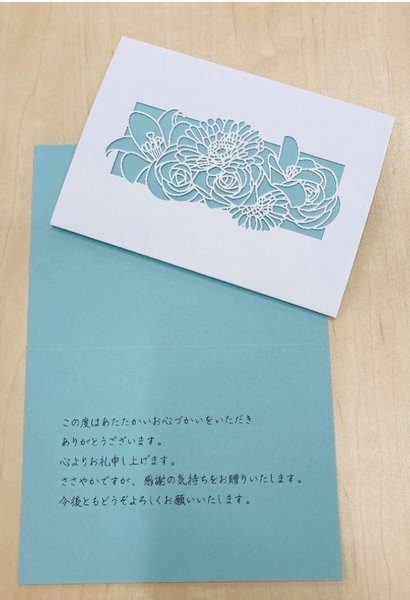 この度はあたたかいお心づかいをいただき
ありがとうございます。
心よりお礼申し上げます。
ささやかですが、感謝の気持ちをお贈りいたします。
今後ともどうぞよろしくお願いいたします。